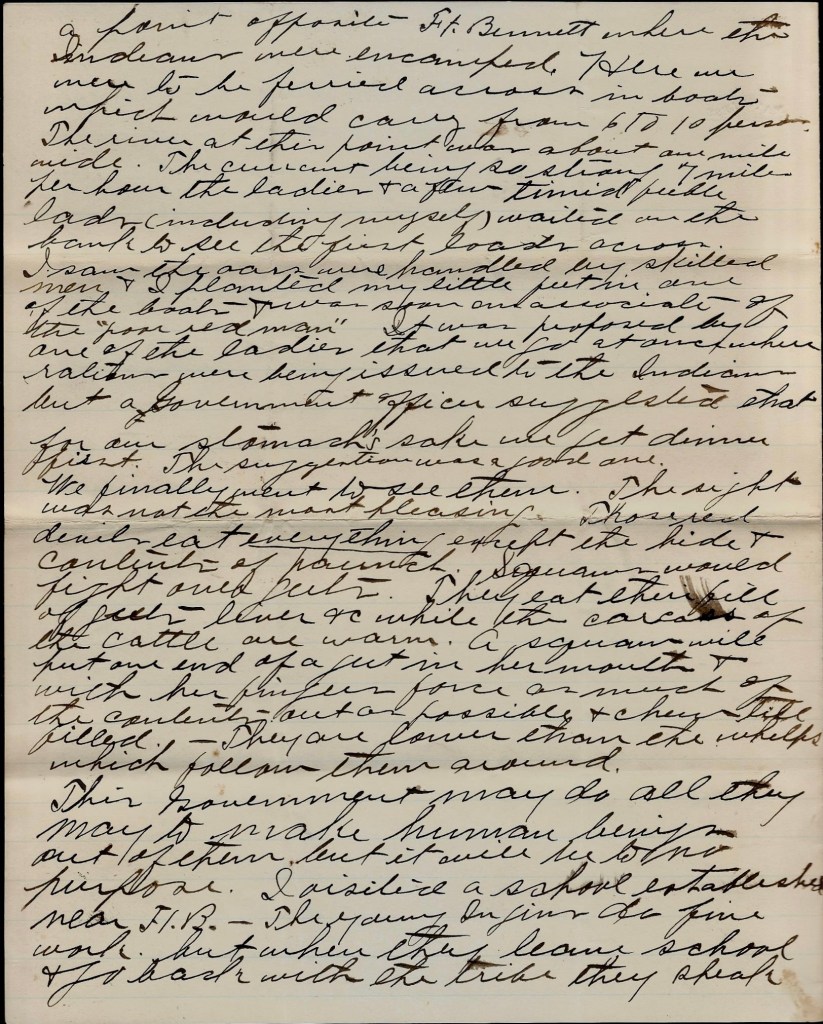 a point opposite Ft. Bennett where the
Indians were encamped. Here we
were to be ferried across in boats
which would carry from 6 to 10 persons.
The river at this point was about one mile
wide. The current being so strong 7 miles
per hour the ladies & a few timid feeble
lads (including myself) waited on the
bank to see the first loads across.
I saw the oars were handled by skilled
men & I planted my little feet in one
of the boats & was soon an associate of
the "poor red man" It was proposed by
one of the ladies that we go at once where
rations were being issued to the Indians
but a government officer suggested that
for our stomach's sake we get dinner
first. The suggestion was a good one.
We finally went to see them. The sight
was not the most pleasing. Those red
devils eat everything except the hide &
contents of paunch. Squaws would
fight over guts. They eat their fill
of guts liver &c while the carcass of
the cattle are warm. A squaw will
put one end of a gut in her mouth &
with her fingers force as much of
the contents out as possible & chew till
filled. — They are lower than the whelps
which follow them around.
This Government may do all they
may to make human beings
out of them but it will be to no
purpose. I visited a school established
near Ft. B. — The young Injins do fine
work. but when they leave school
& go back with the tribe they speak